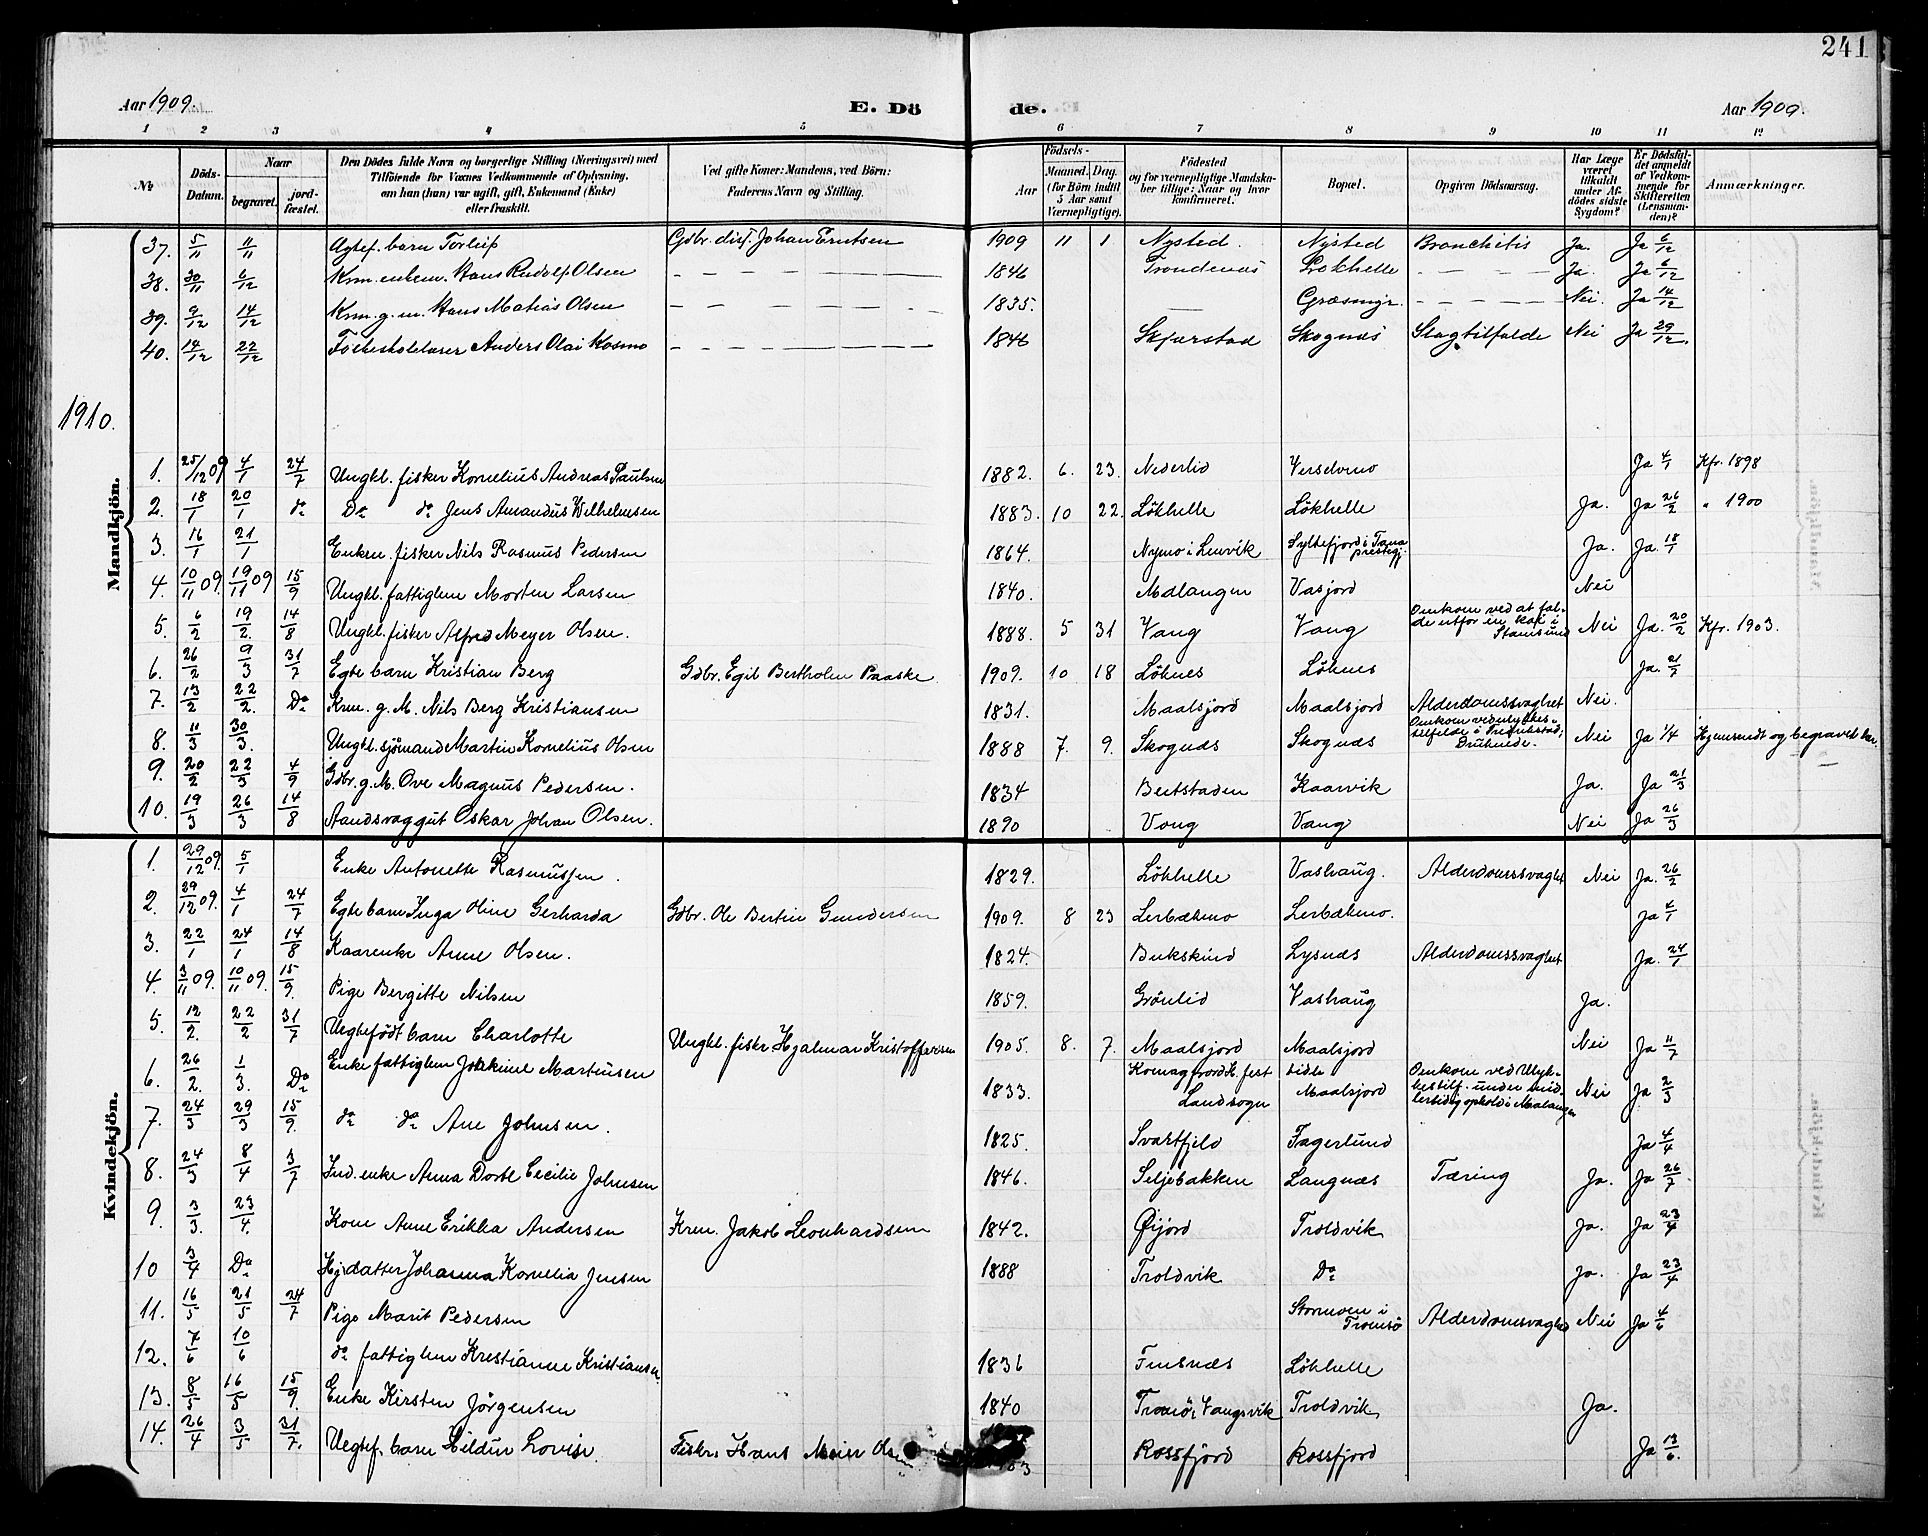 241
Aar 1909. E. Dö de. Aar 1909.
1 2 3 4 5 6 7 8 9 10 11 12
№ Döds-Datum. Naar begravet. jordfæstet. Den Dödes fulde Navn og borgerlige Stilling (Næringsvei) med Tilföiende for Voxnes Vedkommende af Oplysning, om han (hun) var ugift, gift, Enkemand (Enke) eller fraskilt. Ved gifte Koner: Mandens, ved Börn: Faderens Navn og Stilling. Födsels- Aar Maaned. Dag. (for Börn indtil 5 Aar samt Værnepligtige). Födested og for værnepligtige Mandskaber tillige: Naar og hvor konfirmeret. Bopæl. Opgiven Dödsaarsag. Har Læge været tilkaldt under Afdödes sidste Sygdom? Er Dödsfaldet anmeldt af Vedkommende for Skifteretten (Lensmanden)? Anmærkninger.
37. 5/11 11/11 Ægtef. barn Torleif Gdbr. Johan Erntsen 1909 11 1 Nysted. Nysted Bronchitis Ja. Ja 6/12
38. 30/11 6/12 Krm. enkem. Hans Rudolf Olsen — — — — 1846 Trondenæs Løkhelle — — — Ja. Ja 6/12
39. 9/12 14/12 Krm. g. m. Hans Matias Olsen — — — — 1835. — Græsmyr. — — — — Nei. Ja 14/12
40. 14/12 22/12 Folkeskolelærer Anders Olai Kosmo — — — — 1846 Skjerstad Skognæs Slagtilfælde Nei Ja 29/12.
1910.
Mandkjön.
1. 25/12 09 4/1 24/7 Ungkl. fisker Kornelius Andreas Paulsen 1882. 6. 23. Nederlid Ja 4/1 Kfr. 1898
2. 18/1 20/1 do Do do Jens Amandus Wilhelmsen 1883. 10 22. Løkhelle Løkhelle Ja. Ja 26/2 " 1900
3. 16/1 21/1 Enkem. fisker Nils Rasmus Pedersen 1864. Nymo i Lenvik Syltefjord i Tana prestegj. Ja. Ja. 18/1
4. 10/11 09. 19/11 09 15/9 Ungkl. fattiglem Morten Larsen 1840. Malangen Vasjord Nei
5. 6/2 19/2. 14/8 Ungkl. fisker Alfred Meyer Olsen. 1888. 5 31 Vang Vang Omkom ved at falde utfor en kai i Stamsund Nei Ja. 20/2 Kfr. 1903.
6. 26/2 9/3 31/7 Egte barn Kristian Berg Gdbr. Egil Bertholen Paaske 1909. 10 18 Løknes Løknes Ja. 21/7
7. 13/2 22/2. Do Krm. g. M. Nils Berg Kristiansen 1831. Maalsjord Maalsjord Alderdomssvaghet Nei.
8. 11/3 30/3. Ungkl. sjömand Martin Kornelius Olsen 1888 7. 9. Skognæs Skognæs Omkom ved ulykkestilfelde i Fredrikstad; Druknede. Nei Ja 1/4 Hjemsendt og begravet her.
9. 20/2 22/3 4/9 Gdbr. g. M. Ove Magnus Pedersen. 1834 Bertstaden Kaarvik Ja. Ja 21/3
10. 19/3 26/3 14/8 Aandsvag gut Oskar Johan Olsen. 1890 Vang Vang Nei Ja 26/3
Kvindekjön.
1. 29/12 09. 5/1 Enke Antonette Rasmussen. 1829. Løkhelle Vashaug. Alderdomssvaghet Nei Ja. 26/2
2. 29/12 09. 4/1 24/7 Egte barn Inga Oline Gerharda Gdbr. Ole Bertin Gundersen 1909. 8 23 Lerbækmo Lerbækmo. Ja 4/1
3. 22/1 24/1 14/8 Kaarenke Anne Olsen. 1824. Bukskind Lysnæs Alderdomssvaghet Ja. 24/1
4. 3/11 09. 10/11 09. 15/9. Pige Bergitte Nilsen 1859. Grönlid Vashaug Ja.
5. 12/2. 22/2 31/7 Uegtefödt barn Charlotte Ungkl. fiskr Hjalmar Kristoffersen 1905. 8. 7. Maalsjord Maalsjord Nei Ja 11/7
6. 26/2. 1/3. Do Enke fattiglem Jokkime Martinsen 1833. Komagfjord H.fest Landsogn Maalsjord Omkom ved Ulykkestilf. under midlertidig ophold i Malangen Nei Ja 2/3
7. 24/3 29/3 15/9. do do Ane Johnsen. 1825. Svartfjeld Fagerlund Ja 4/4
8. 24/3 8/4 3/7 Ind. enke Anna Dorte Cecilie Johnsen 1846. Seljebakken Langnæs Tæring Ja. Ja 26/7
9. 3/3. 23/4. Kone Anne Erikka Andersen Krm. Jakob Leonhardsen 1842. Øijord Troldvik Ja. Ja 23/4
10 3/4 Do Hj. datter Johanna Kornelia Jensen 1888 Troldvik Do Ja. Ja 23/4
11. 16/5 21/5 24/7 Pige Marit Pedersen Stormoen i Tromsø Alderdomsvaghed Nei Ja 4/6
12. 7/6 10/6 do fattiglem Kristianne Kristiansen. 1836 Finsnæs Løkhelle
13. 8/5 16/5 15/9. Enke Kirsten Jörgensen 1840 Tranö, Vangsvik Troldvik Ja.
14. 26/4 3/5 31/7. Uegtef. barn Hildur Lovise. Fiskr. Hans Meier Olsen Rossfjord Rossfjord Ja 13/6.